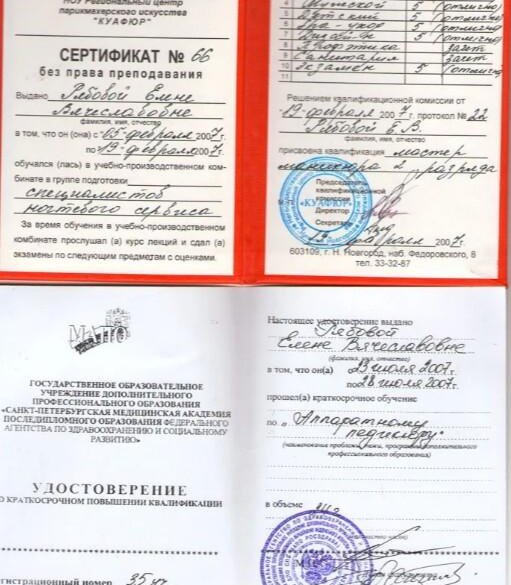 НОУ Региональный центр
парикмахерского искусства
"КУАФЮР"
СЕРТИФИКАТ № 66
без права преподавания
Выдано Рябовой Елене
Вячеславовне
фамилия, имя, отчество
в том, что он (она) с "05" февраля 2007 г.
по "19" февраля 2007 г.
обучался (лась) в учебно-производственном ком-
бинате в группе подготовки
специалистов
ногтевого сервиса
За время обучения в учебно-производственном
комбинате прослушал (а) курс лекций и сдал (а)
экзамены по следующим предметам с оценками.
4 Мужской 5 (отлично)
5 Детский 5 (отлично)
6 5 (отлично)
7 Дизайн 5 (отлично)
8 зачет
9 Санитария зачет
10 Экзамен 5 (отлично)
11
Решением квалификационной комиссии от
"19" февраля 2007 г. протокол № 22
Рябовой Е.В.
фамилия, имя, отчество
присвоена квалификация мастер
маникюра 2 разряда
Председатель
квалификационной
комиссии
М.П.
Директор
Секретарь
«КУАФЮР»
19 февраля 2007 г.
603109, г. Н. Новгород, наб. Федоровского, 8
тел. 33-32-87
ГОСУДАРСТВЕННОЕ ОБРАЗОВАТЕЛЬНОЕ
УЧРЕЖДЕНИЕ ДОПОЛНИТЕЛЬНОГО
ПРОФЕССИОНАЛЬНОГО ОБРАЗОВАНИЯ
«САНКТ-ПЕТЕРБУРГСКАЯ МЕДИЦИНСКАЯ АКАДЕМИЯ
ПОСЛЕДИПЛОМНОГО ОБРАЗОВАНИЯ ФЕДЕРАЛЬНОГО
АГЕНТСТВА ПО ЗДРАВООХРАНЕНИЮ И СОЦИАЛЬНОМУ
РАЗВИТИЮ»
УДОСТОВЕРЕНИЕ
О КРАТКОСРОЧНОМ ПОВЫШЕНИИ КВАЛИФИКАЦИИ
регистрационный номер 35
Настоящее удостоверение выдано
Рябовой
Елене Вячеславовне
(фамилия, имя, отчество)
в том, что он(а) с 23 июля 2007 г.
по 28 июля 2007 г.
прошел(а) краткосрочное обучение
по "Аппаратному
педикюру"
(наименование проблемы, темы, программы дополнительного
профессионального образования)
в объеме